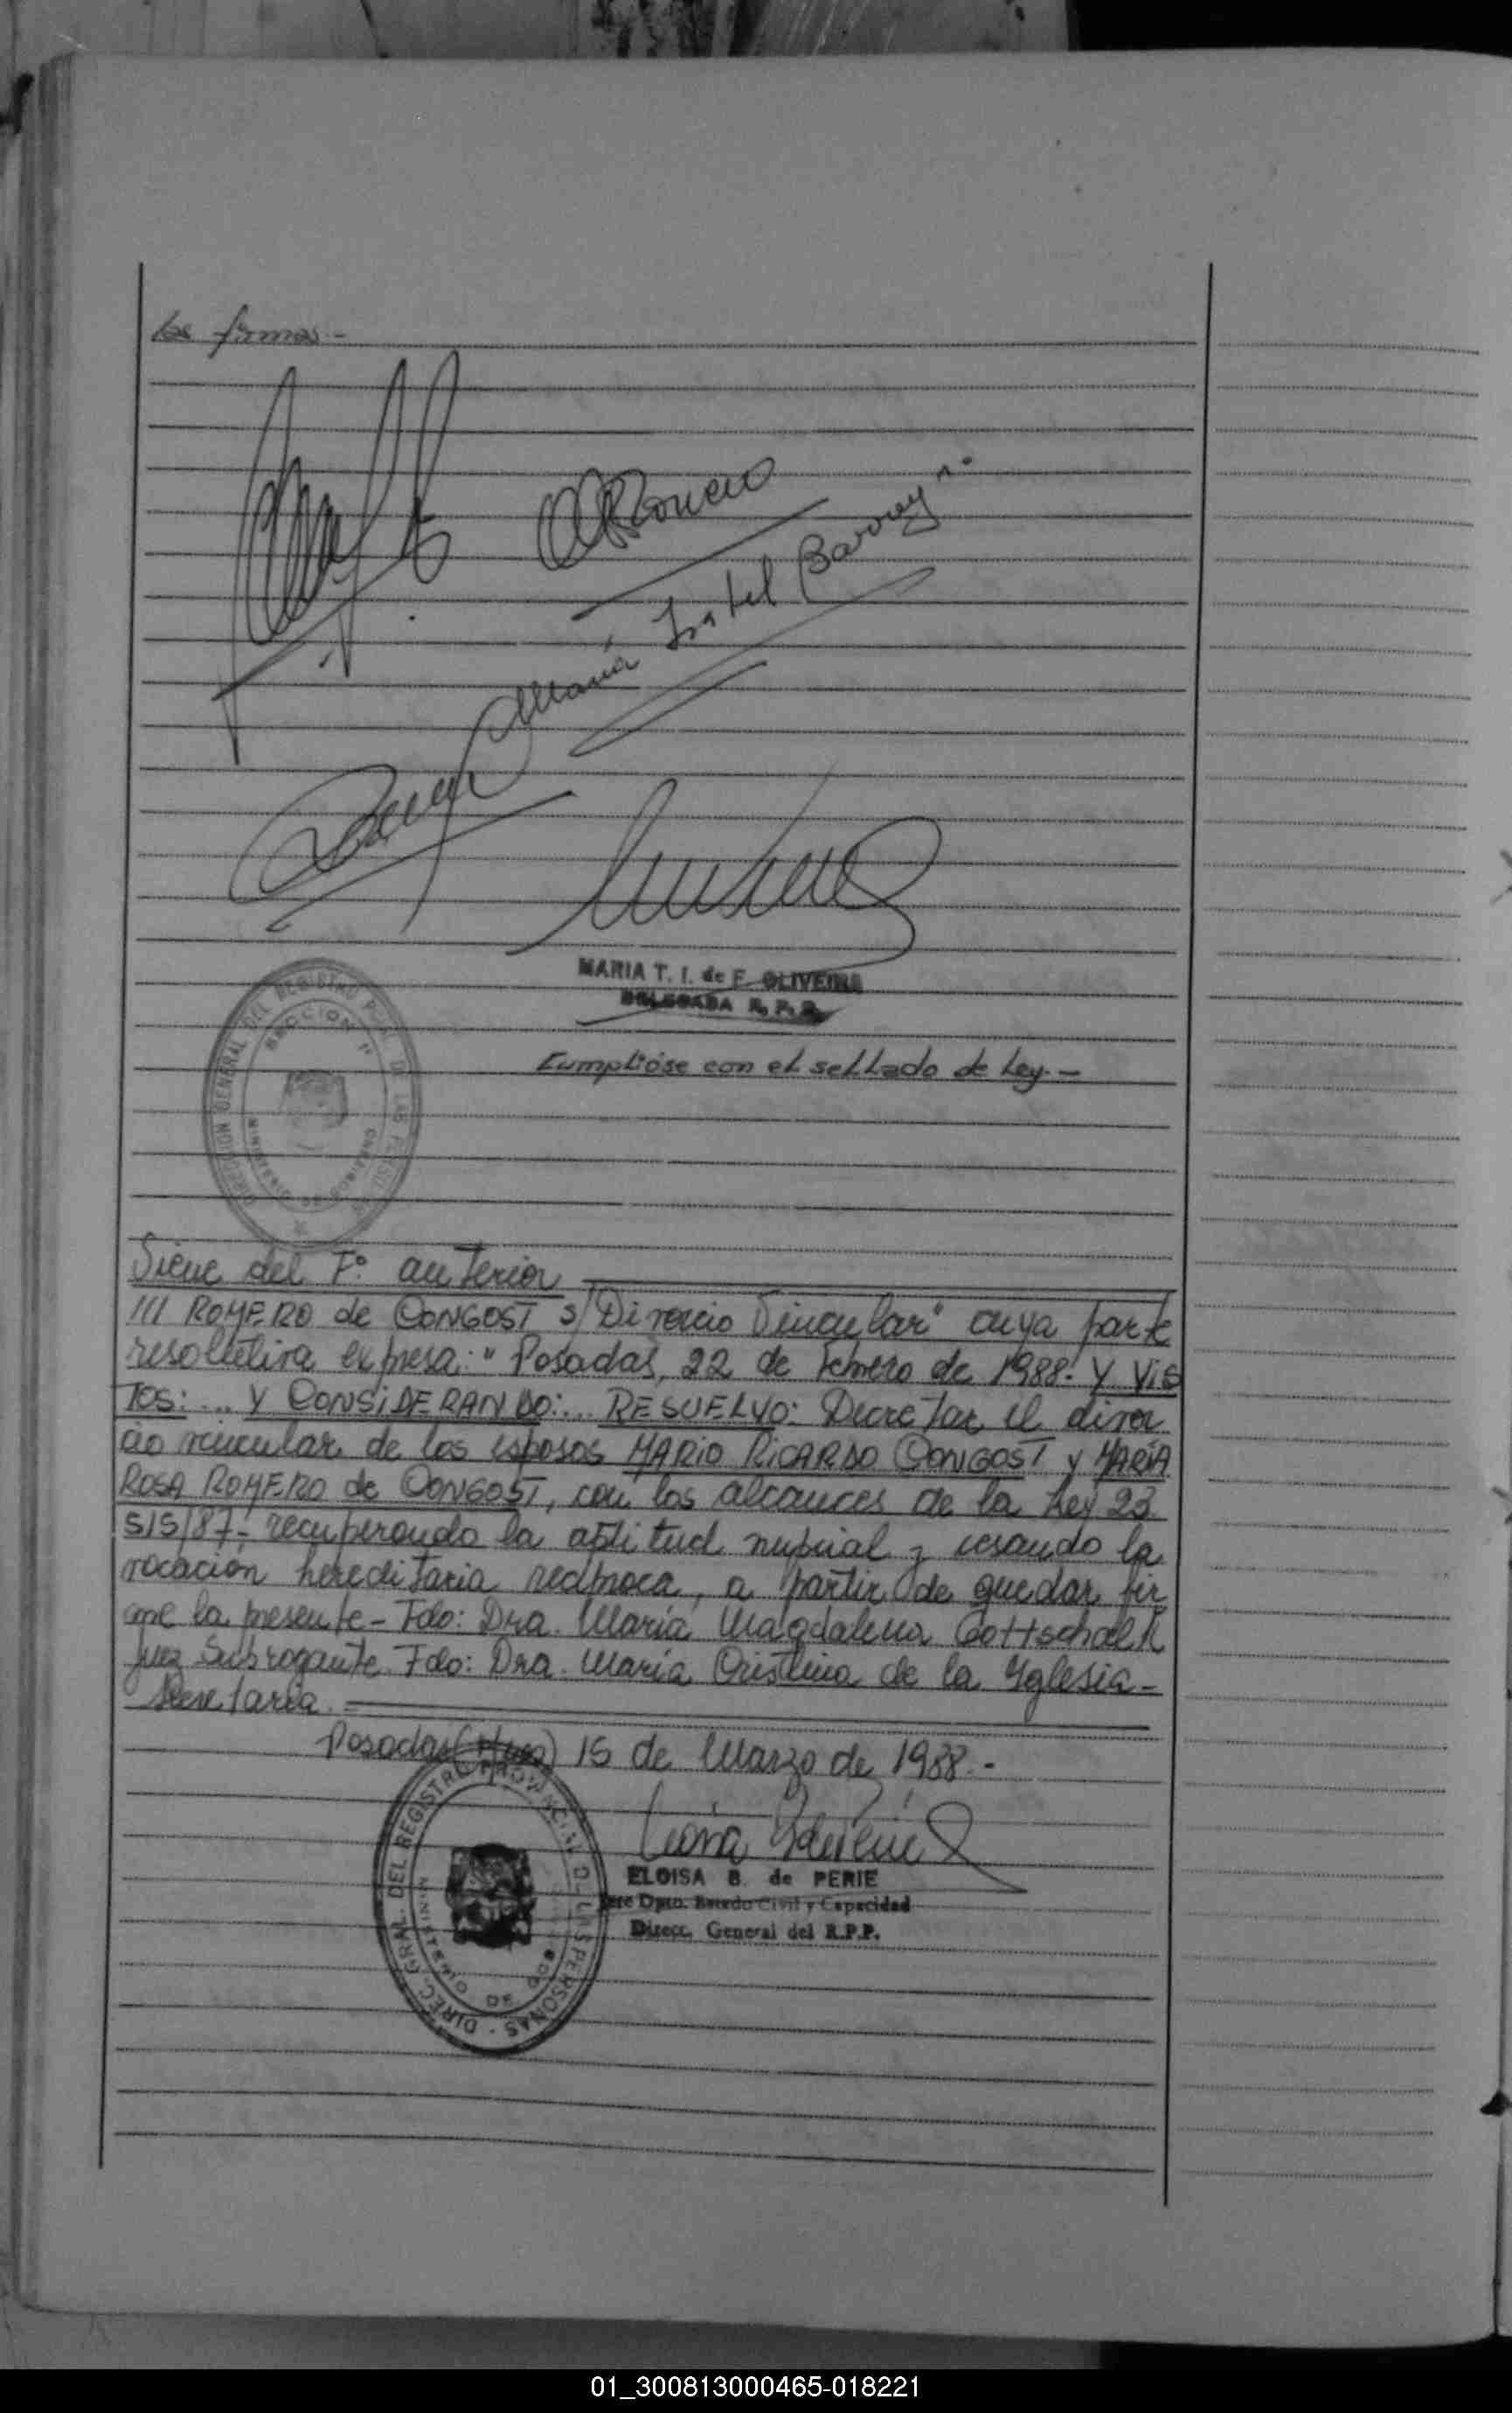 las firmas.-
María Isabel Barrey
MARIA T. I. de F. OLIVEIRA
DELEGADA R. P. P.
DIRECCION GENERAL DEL REGISTRO DE LAS PERSONAS
SECCION 1ª
MINISTERIO DE GOBIERNO
Cumplióse con el sellado de Ley.-
Viene del Fº anterior
/// ROMERO de CONGOST s/ Divorcio Vincular" cuya parte
resolutiva expresa: "Posadas, 22 de Febrero de 1988.- Y VIS
TOS: ... Y CONSIDERANDO: ... RESUELVO: Decretar el divor
cio vincular de los esposos MARIO RICARDO CONGOST y MARÍA
ROSA ROMERO de CONGOST, con los alcances de la Ley 23.
515/87,- recuperando la aptitud nupcial y cesando la
vocación hereditaria recíproca, a partir de quedar fir
me la presente - Fdo: Dra. María Magdalena Gottschalk
Juez Subrogante. Fdo: Dra. María Cristina de la Iglesia -
Secretaria.
Posadas (Mnes) 15 de Marzo de 1988.-
DIREC. GRAL. DEL REGISTRO PROVINCIAL DE LAS PERSONAS
MINISTERIO DE GOB
ELOISA B. de PERIE
Jefe Dpto. Estado Civil y Capacidad
Direcc. General del R.P.P.
01_300813000465-018221